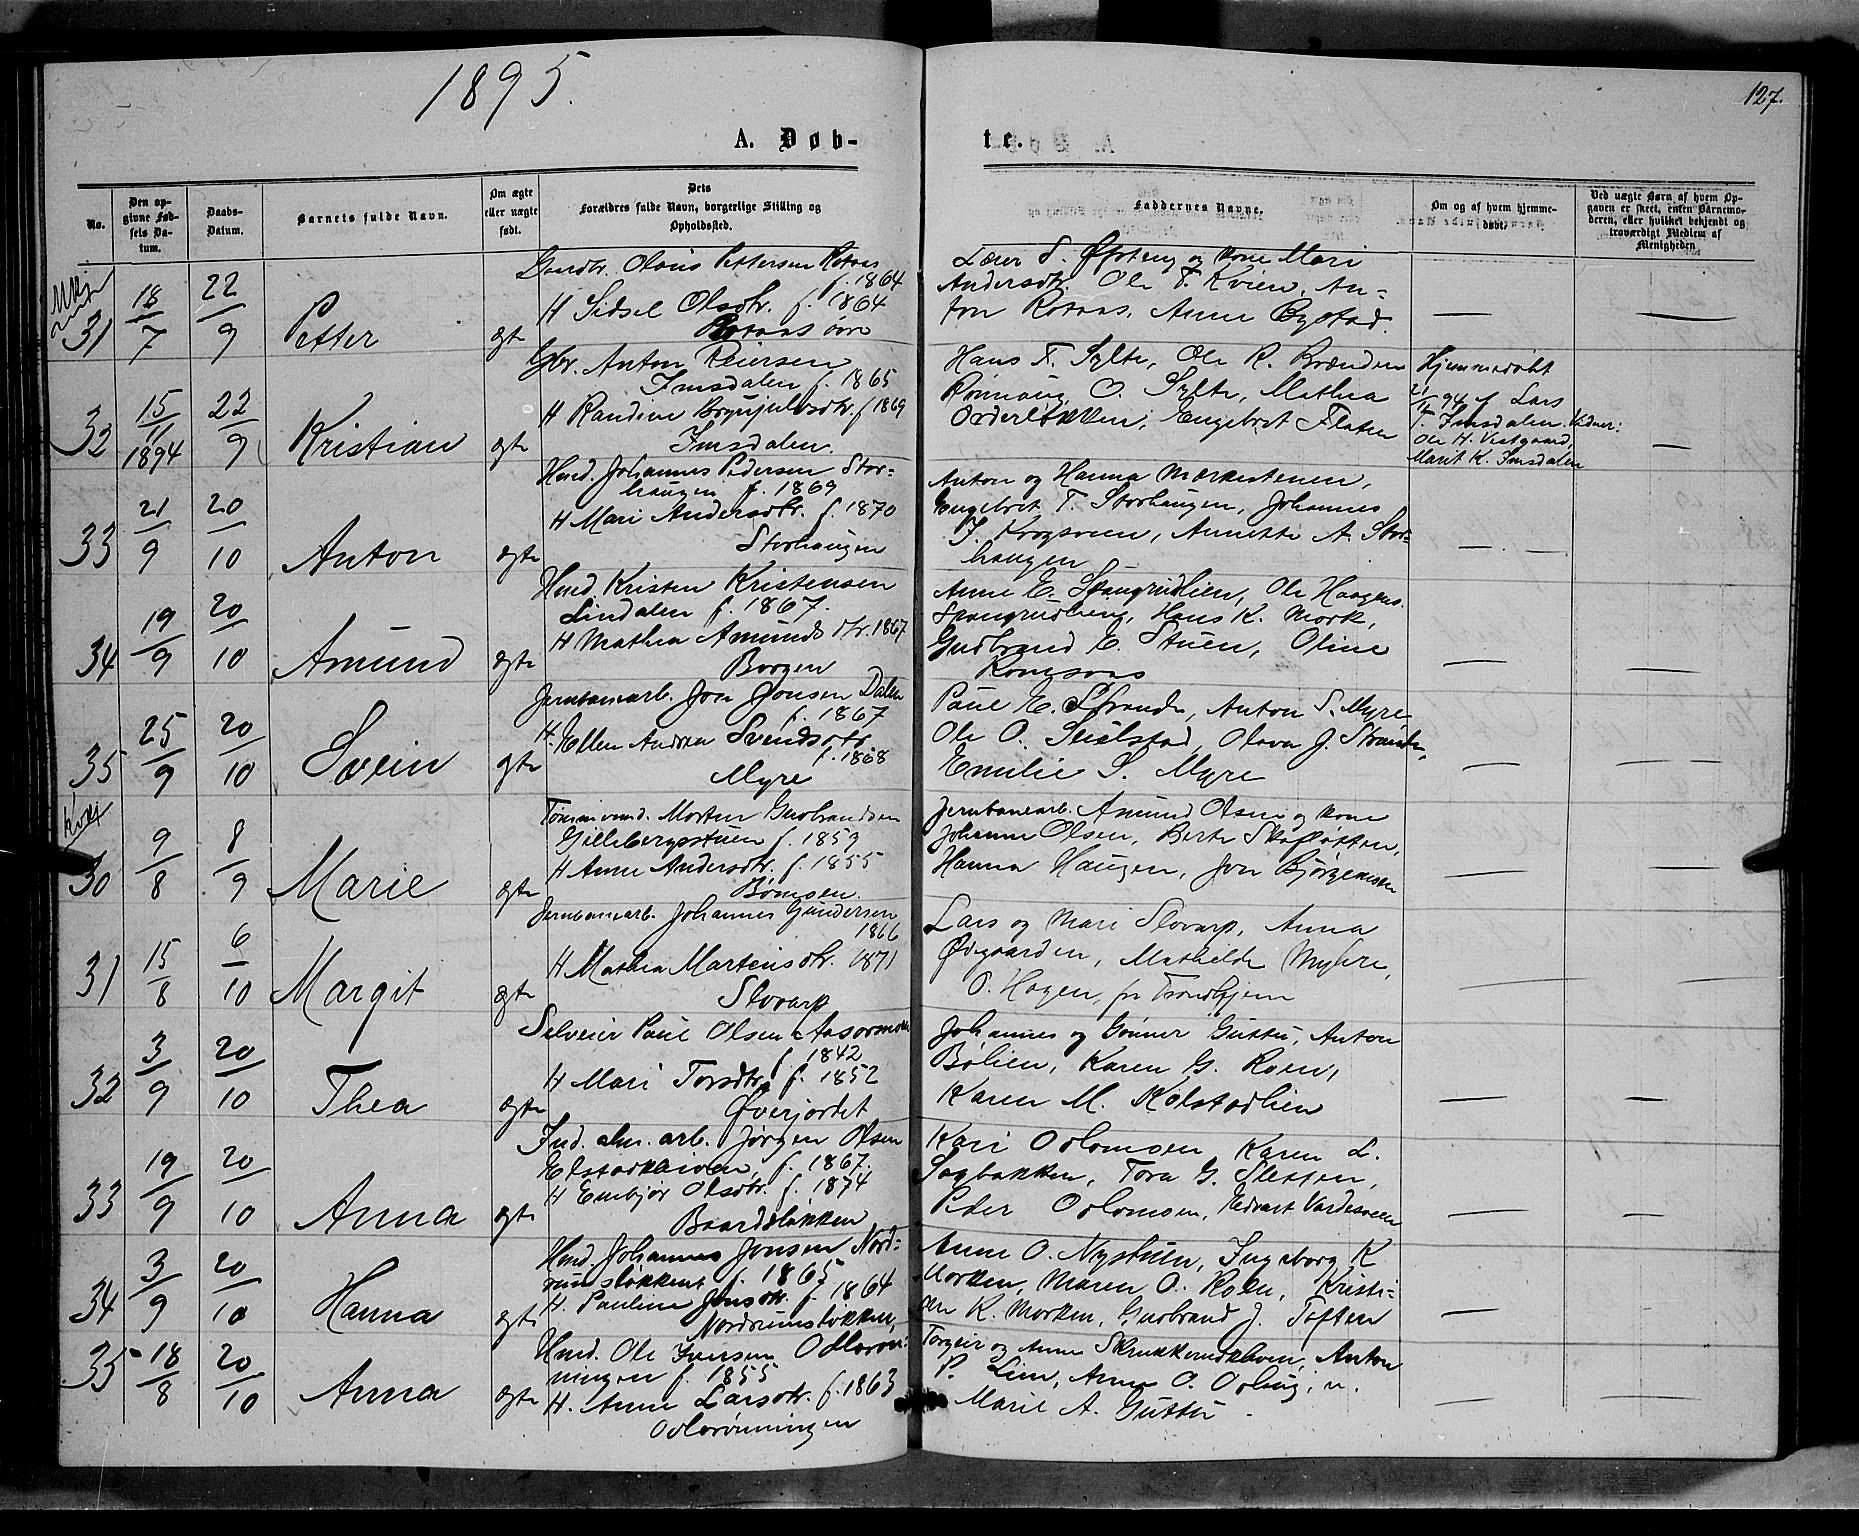 1895.
127.
A. Døb-
te.
No.
Den op-
givne Fød-
sels Da-
tum.
Daabs-
Datum.
Barnets fulde Navn.
Om ægte
eller uægte
født.
Dets
Forældres fulde Navn, borgerlige Stilling og
Opholdssted.
Faddernes Navne.
Om og af hvem hjemme-
døbt.
Ved uægte Børn af hvem Op-
gaven er skeet, enten Barnemo-
deren, eller hvilket bekjendt og
troværdigt Medlem af
Menigheden
31
18/7
22/9
Petter
ægte
Gaardbr. Olaus Pettersen Rotaas
f. 1864
H Sidsel Olsdtr. f. 1864
Rotaas øvre
Andersdtr. Ole T. Kvien, An-
ton Rotaas, Anne Bystad.
—
32
15/11
1894
22/9
Kristian
ægte
Gbr. Anton Peiersen
Imsdalen f. 1865
H Randine Brynjulvsdtr. f 1869
Imsdalen.
Hans F. Sylte, Ole R. Brænden
O. Sylte, Mathea
Engebret Flaten
Hjemmedøbt
94 af Lars
T. Imsdalen. Vidner:
Ole H. Vestgaard,
Marit K. Imsdalen
—
33
21/9
20/10
Anton
ægte
Hmd. Johannes Pedersen Stor-
haugen f. 1869
H Mari Andersdtr. f. 1870
Storhaugen
Anton og Hanna Morkestenen,
Engebret T. Storhaugen, Johannes
J. Krogsveen, Annette A. Stor-
haugen
—
34
19/9
20/10
Amund
ægte
Hmd. Kristen Kristensen
Lindalen f. 1867.
H Mathea Amundsdtr. 1867
Borgen
Anne E. Spangrudlien, Ole Haagens.
Spangrudlien, Hans K. Mork,
Gudbrand E. Stuen, Oline
—
35
25/9
20/10
Svein
ægte
Jernbanearb. Jon Jonsen Dalen
f. 1867
H. Ellen Andrea Svendsdtr.
f. 1868
Myre
Paul E. Strande, Anton S. Myre
Ole O. Skielstad, Olava J. Strande,
Emilie S. Myre
—
30
9/8
8/9
Marie
ægte
Tømmermd. Morten Gudbrandsen
Gillebergsstuen f. 1859
H Anne Andersdtr. f. 1855
Jernbanearb. Amund Olsen og Kone
Johanne Olsen, Berte Skafløtten,
Hanna Haugen, Jon Bjørgemoen
—
31
15/8
6/10
Margit
ægte
Jernbanearb. Johannes Gundersen
1866
H Mathea Martensdtr. 1871
Slovarp
Lars og Mari Slovarp, Anna
Øvgaarden, Mathilde Myhre,
O. Hagen, fr Trondhjem
—
32
3/9
20/10
Thea
ægte
Selveier Paul Olsen Aasormoen
f 1842
H Mari Torsdtr. f. 1852
Øverjordet
Johannes og Gunner Guttu, Anton
Bølien, Karen G. Roen,
Karen M. Kolstadlien
—
33
19/9
20/10
Anna
ægte
Ind. alm. arb. Jørgen Olsen
Elstadkleiven, f. 1867.
H Embjør Olsdtr. f. 1874
Baardsløkken
Kari Odlomoen Karen L.
Sagbakken, Tora G. Sletten,
Peder Odlomoen, Edvart Vardesveen
—
34
3/9
20/10
Hanna
ægte
Hmd. Johannes Jonsen Nord-
rumsløkken f. 1865
H. Pauline Jonsdtr. f 1864
Nordrumsløkken,
Anne O. Nystuen, Ingeborg K
Morken, Maren O. Roen, Kristi-
an K. Morken, Gudbrand J. Toften
—
35
18/8
20/10
Anna
ægte
Hmd. Ole Iversen Odlorøn-
ningen f. 1855
H. Anne Larsdtr. f. 1863
Odlorønningen
Torgeir og Anne Skrukkerudkleven, Anton
P. Lien, Anne O.
Marie A. Guttu
—